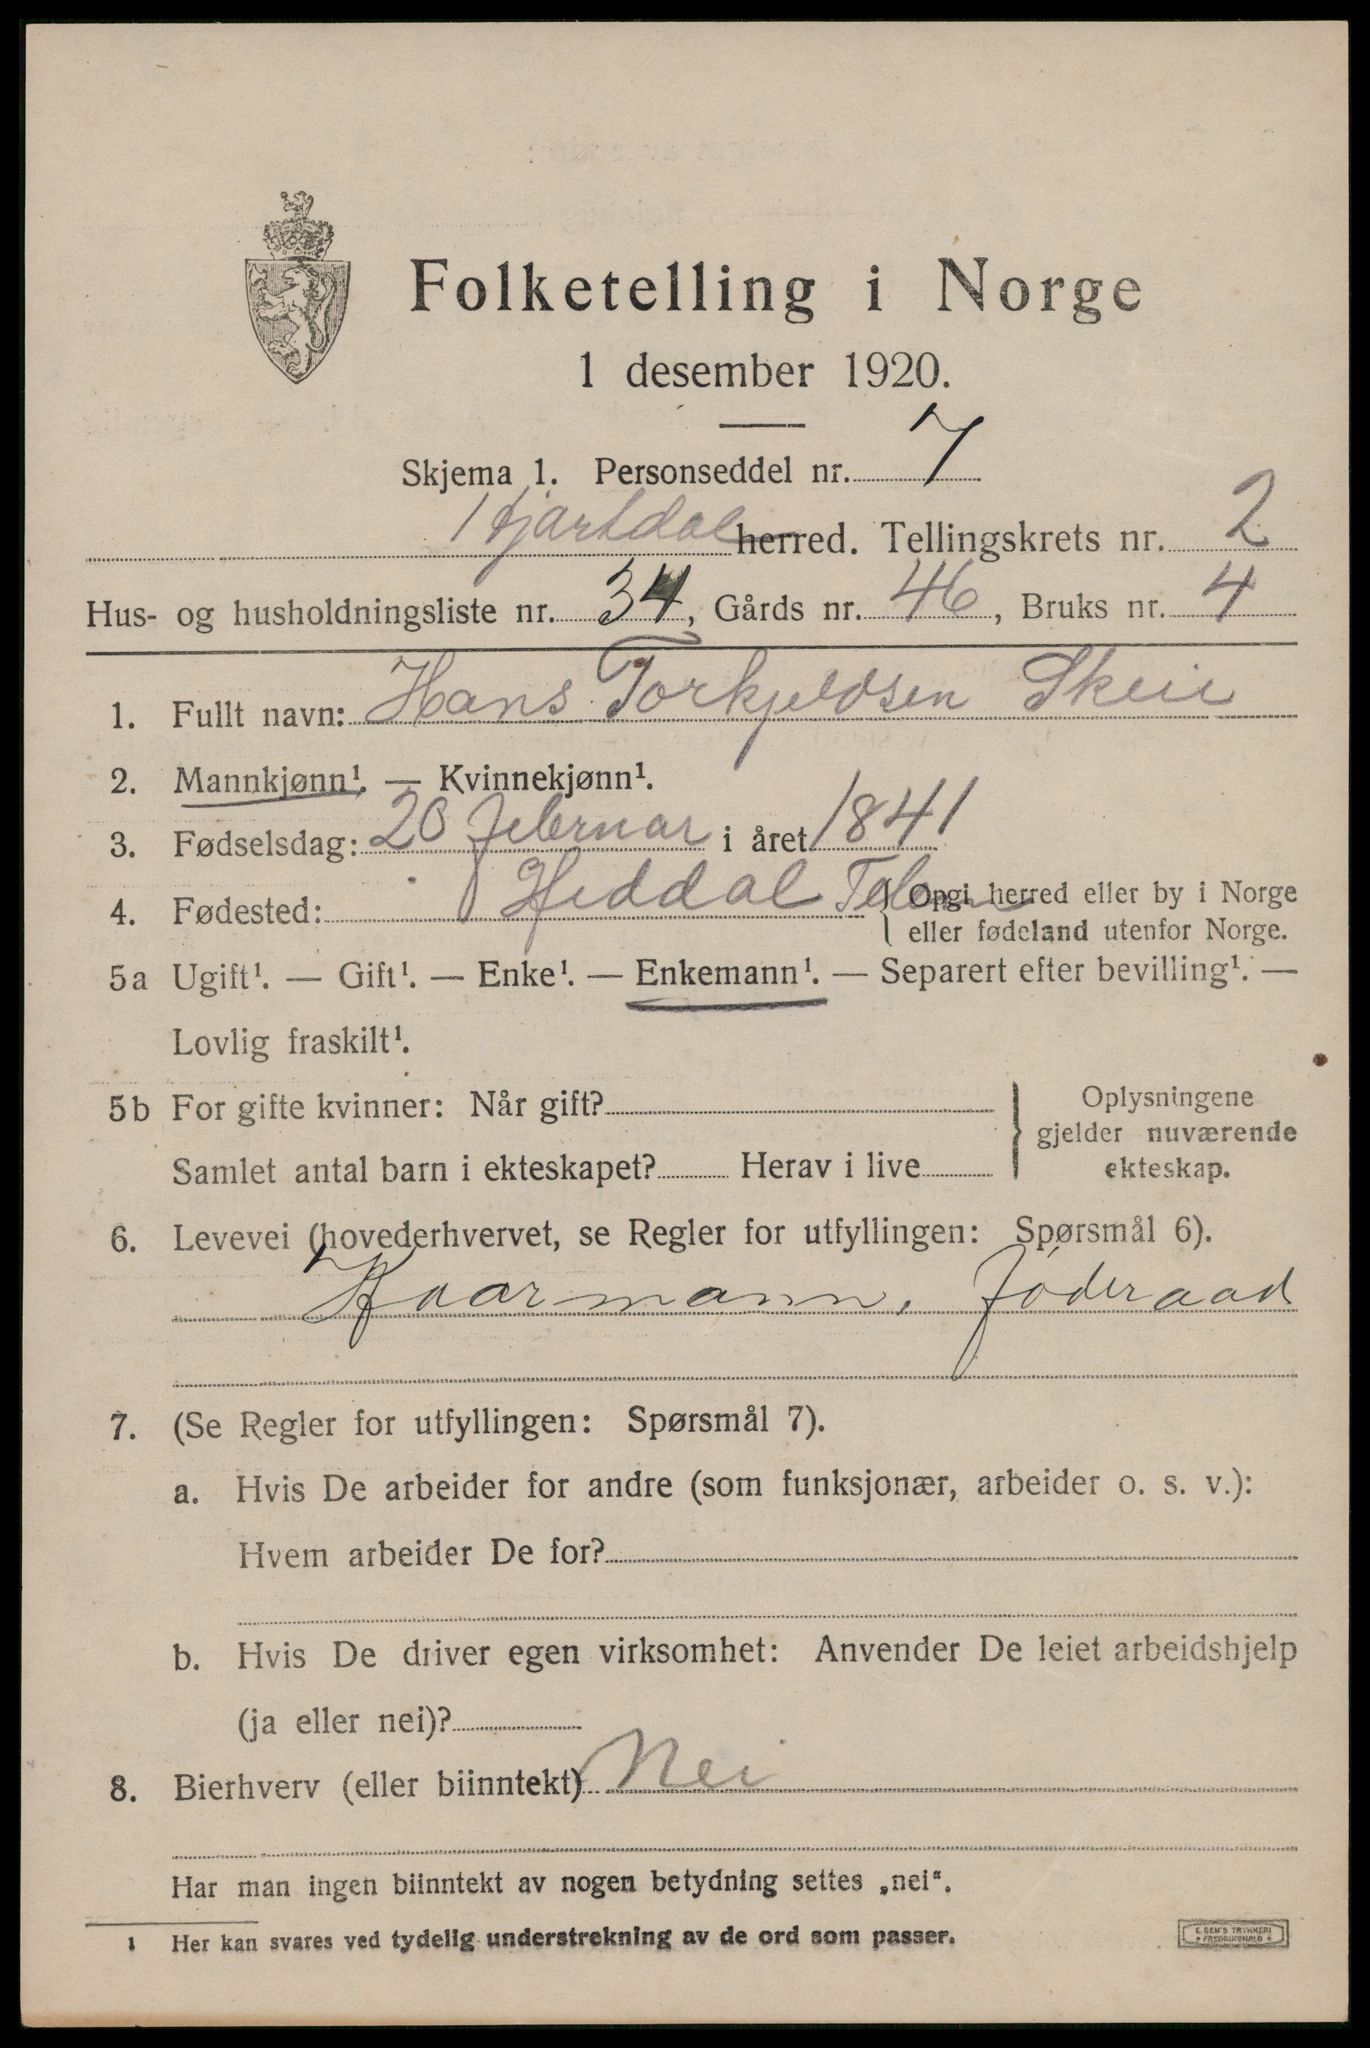 Folketelling i Norge
1 desember 1920.
Skjema 1. Personseddel nr. 7
Hjartdal herred. Tellingskrets nr. 2
Hus- og husholdningsliste nr. 34, Gårds nr. 46, Bruks nr. 4
1. Fullt navn: Hans Torkjeldsen Skeie
2. Mannkjønn¹. — Kvinnekjønn¹.
3. Fødselsdag: 20 februar i året 1841
4. Fødested: Hiddal Telem { Opgi herred eller by i Norge
eller fødeland utenfor Norge.
5a Ugift¹. — Gift¹. — Enke¹. — Enkemann¹. — Separert efter bevilling¹. —
Lovlig fraskilt¹.
5b For gifte kvinner: Når gift?
Samlet antal barn i ekteskapet? Herav i live
Oplysningene
gjelder nuværende
ekteskap.
6. Levevei (hovederhvervet, se Regler for utfyllingen: Spørsmål 6).
Kaarmann, föderaad
7. (Se Regler for utfyllingen: Spørsmål 7).
a. Hvis De arbeider for andre (som funksjonær, arbeider o. s. v.):
Hvem arbeider De for?
b. Hvis De driver egen virksomhet: Anvender De leiet arbeidshjelp
(ja eller nei)?
8. Bierhverv (eller biinntekt) Nei
Har man ingen biinntekt av nogen betydning settes „nei“.
1 Her kan svares ved tydelig understrekning av de ord som passer.
E. SEM'S TRYKKERI
FREDRIKSHALD